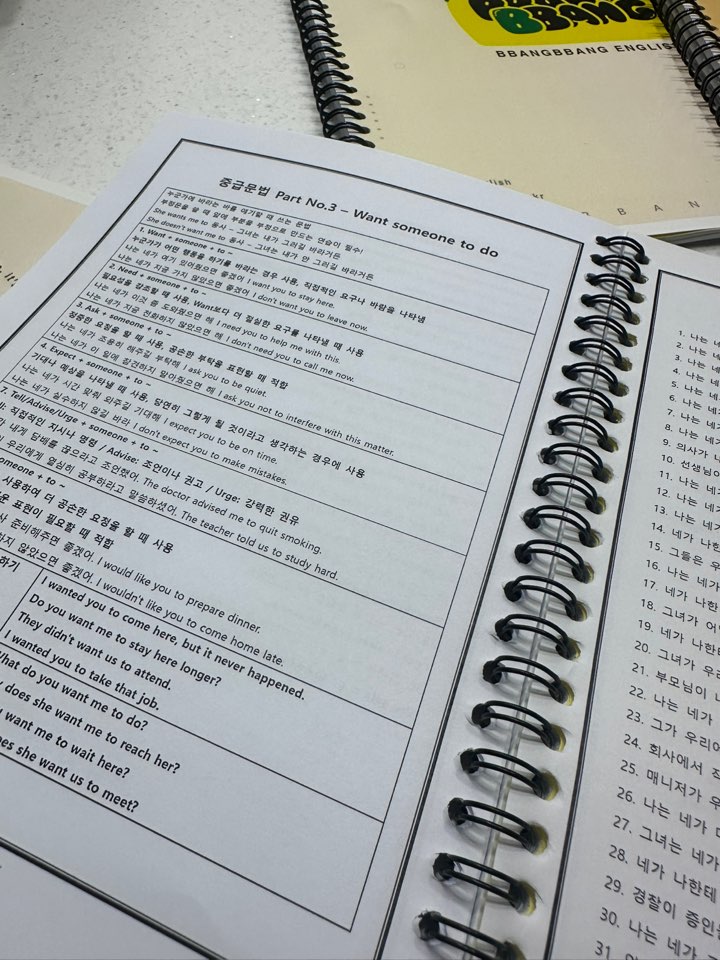 BBANG
BBANGBBANG ENGLIS
lish
kr
B A N
중급문법 Part No.3 – Want someone to do
누군가에 바라는 바를 얘기할 때 쓰는 문법
부정문을 쓸 때 앞에 부분을 부정으로 만드는 연습이 필수!
She wants me to 동사 – 그녀는 내가 그러길 바라거든
She doesn't want me to 동사 – 그녀는 내가 안 그러길 바라거든
1. Want + someone + to ~
누군가가 어떤 행동을 하기를 바라는 경우 사용, 직접적인 요구나 바람을 나타냄
나는 네가 여기 있어줬으면 좋겠어 I want you to stay here.
나는 네가 지금 가지 않았으면 좋겠어 I don't want you to leave now.
2. Need + someone + to ~
필요성을 강조할 때 사용, Want보다 더 절실한 요구를 나타낼 때 사용
나는 네가 이것 좀 도와줬으면 해 I need you to help me with this.
나는 네가 지금 전화하지 않았으면 해 I don't need you to call me now.
3. Ask + someone + to ~
정중한 요청을 할 때 사용, 공손한 부탁을 표현할 때 적합
나는 네가 조용히 해주길 부탁해 I ask you to be quiet.
나는 네가 이 일에 참견하지 말아줬으면 해 I ask you not to interfere with this matter.
4. Expect + someone + to ~
기대나 예상을 나타낼 때 사용, 당연히 그렇게 될 것이라고 생각하는 경우에 사용
나는 네가 시간 맞춰 와주길 기대해 I expect you to be on time.
나는 네가 실수하지 않길 바라 I don't expect you to make mistakes.
7. Tell/Advise/Urge + someone + to ~
직접적인 지시나 명령 / Advise: 조언이나 권고 / Urge: 강력한 권유
내게 담배를 끊으라고 조언했어. The doctor advised me to quit smoking.
우리에게 열심히 공부하라고 말씀하셨어. The teacher told us to study hard.
someone + to ~
사용하여 더 공손한 요청을 할 때 사용
표현이 필요할 때 적합
준비해주면 좋겠어. I would like you to prepare dinner.
하지 않았으면 좋겠어. I wouldn't like you to come home late.
하기
I wanted you to come here, but it never happened.
Do you want me to stay here longer?
They didn't want us to attend.
I wanted you to take that job.
What do you want me to do?
does she want me to reach her?
want me to wait here?
she want us to meet?
1. 나는 네
2. 나는 네
3. 나는 네
4. 나는 네
5. 나는 네
6. 나는 네
7. 나는 네
8. 나는 네
9. 의사가 나
10. 선생님이
11. 나는 네
12. 나는 네
13. 나는 네
14. 네가 나한
15. 그들은 우
16. 나는 네가
17. 네가 나한
18. 그녀가 어
19. 네가 나한테
20. 그녀가 우리
21. 부모님이
22. 나는 네가
23. 그가 우리에
24. 회사에서 직
25. 매니저가 우
26. 나는 네가
27. 그녀는 네가
28. 네가 나한테
29. 경찰이 증인
30. 나는 네가
31.